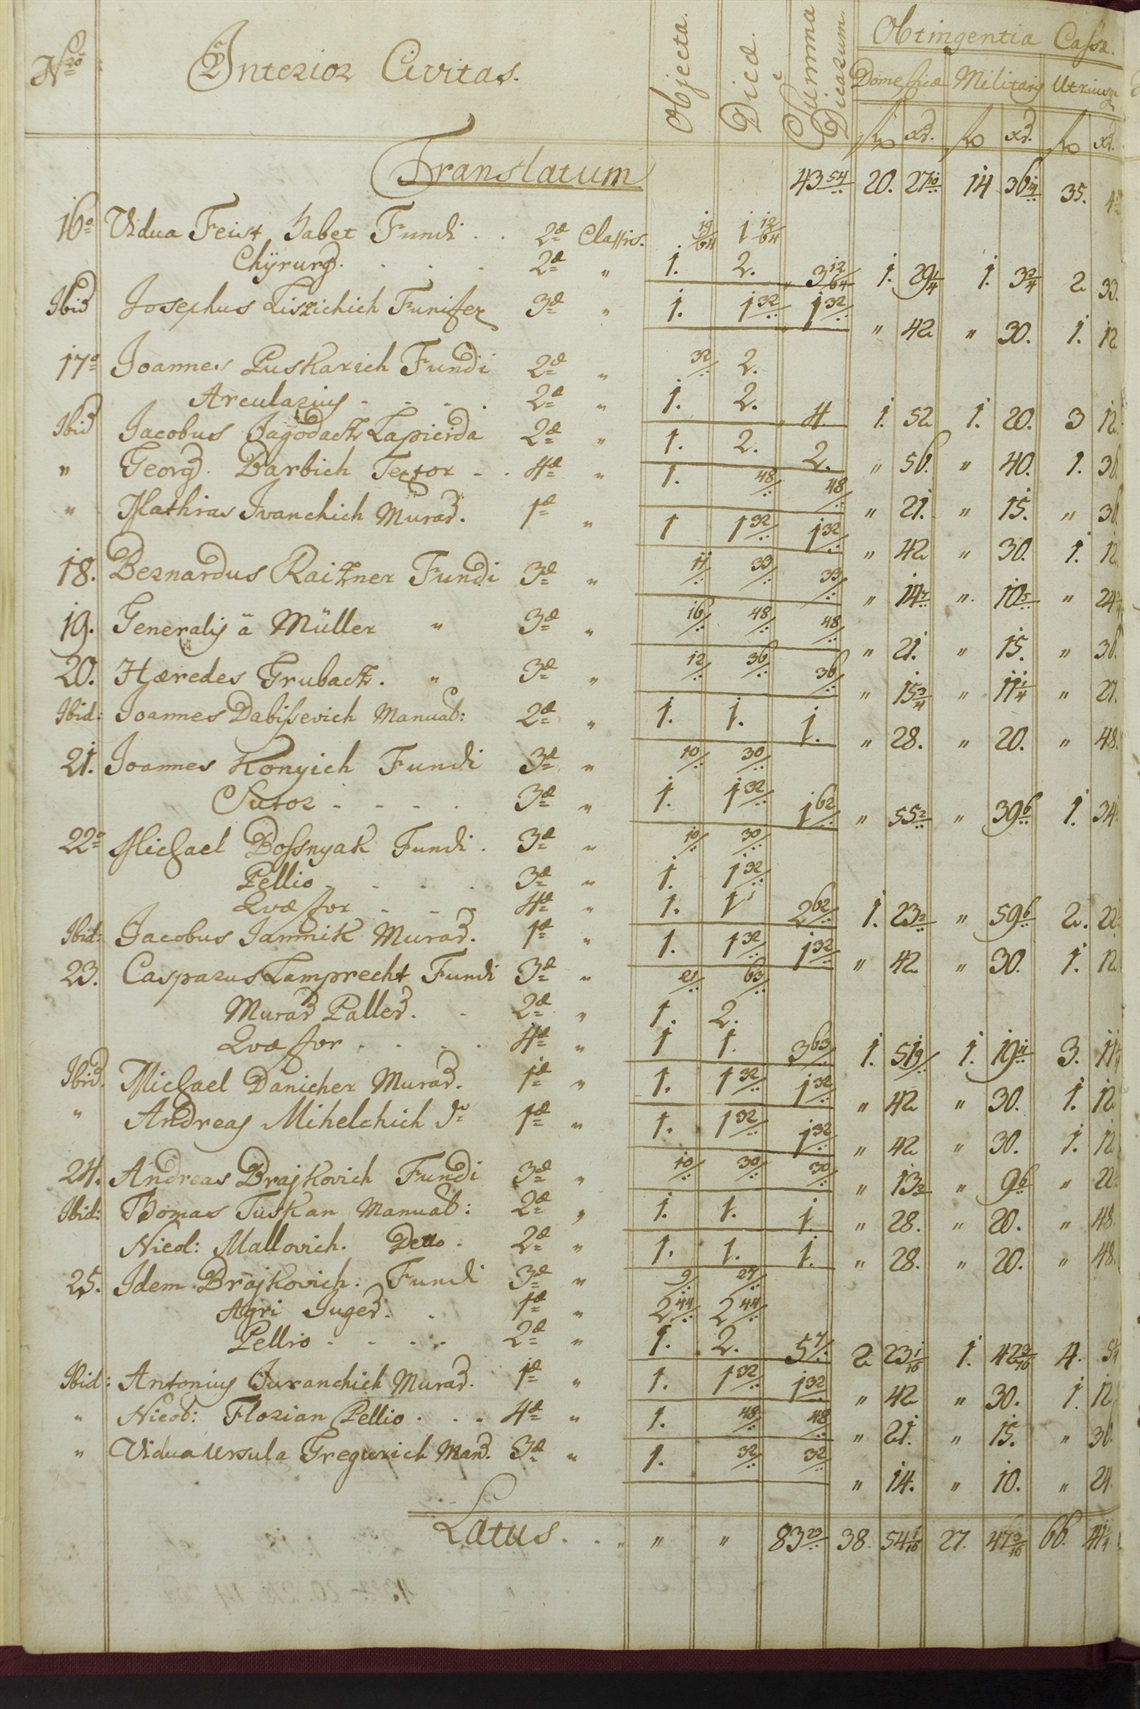 Nro Interior Civitas. Objecta. Dicæ. Summa Dicarum. Obtingentia Cassæ.
Domesticæ Militaris Utriusq
fl xr. fl xr. fl xr.
Translatum 43 54 20. 27 14 36 35.
16a Vidua Feist habet Fundi . . 2æ Classis. 19/64 1 12/64
Chÿrurg. . . . . 2æ " 1. 2. 3 12/64 1. 29 1/4 1. 3 3/4 2 33.
Ibid Josephus Liszichich Funifex 3æ " 1. 1 32 1 32 " 42 " 30. 1. 12
17a Joannes Puskarich Fundi 2æ " 32 2.
Arcularius . . . . 2æ " 1. 2. 4 1. 52 1. 20. 3 12.
Ibid Jacobus Jagodach Lapicida 2æ " 1. 2. 2. " 56. " 40. 1. 36
" Georg. Barbich Textor . . 4æ " 1. 48 48 " 21. " 15. " 36.
" Mathias Ivanchich Murar. 1æ " 1 1 32 1 32 " 42 " 30. 1. 12
18. Bernardus Raitzner Fundi 3æ " 11 33 33 " 14 " 10 " 24
19. Generalis ä Müller " 3æ " 16 48 48 " 21. " 15. " 36.
20. Hæredes Grubach. " 3æ " 12 36 36 " 15 3/4 " 11 1/4 " 27.
Ibid: Joannes Dabissevich Manual: 2æ " 1. 1. 1. " 28. " 20. " 48.
21. Joannes Konyich Fundi 3æ " 10 30
Sutor . . . . 3æ " 1. 1 32 1 62 " 55 " 39 1. 34
22a Michael Bossnyak Fundi . 3æ " 10 30
Pellio . . . . 3æ " 1. 1 32
Quæstor . . . 4æ " 1. 1 2 62 1. 23 " 59 2. 22
Ibid: Jacobus Jamnik Murar. 1æ " 1. 1 32 1 32 " 42 " 30. 1. 12
23. Casparus Lamprecht Fundi 3æ " 21 63
Murar Paller. . 2æ " 1. 2.
Quæstor . . . . 4æ " 1 1. 3 63 1. 51 1. 19 3. 11
Ibid. Michael Danicher Murar. 1æ " 1. 1 32 1 32 " 42 " 30. 1. 12
" Andreas Mihelchich do 1æ " 1. 1 32 1 32 " 42 " 30. 1. 12
24. Andreas Brajkovich Fundi 3æ " 10 30 30 " 13 " 9 " 22
Ibid: Thomas Tuskan Manual: 2æ " 1. 1. 1. " 28. " 20. " 48
Nicol: Mallovich. Detto . 2æ " 1. 1. 1. " 28. " 20. " 48
25. Idem Brajkovich. Fundi 3æ " 9 27
Agri Juger. . 1æ " 2 44 2 44
Pellio . . . . 2æ " 1. 2. 5 7 2 23 1/16 1. 42 3/16 4.
Ibid: Antonius Juranchich Murar. 1æ " 1. 1 32 1 32 " 42 " 30. 1. 12
" Nicol: Florian Pellio . . . 4æ " 1. 48 48 " 21. " 15. " 36.
" Vidua Ursula Gregurich Man. 3æ " 1. 32 32 " 14. " 10. " 24.
Latus. . . " " 83 38. 54 1/16 27. 47 3/16 66. 41